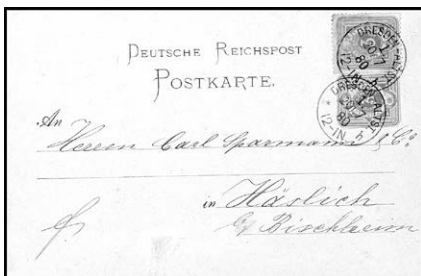 DEUTSCHE REICHSPOST
POSTKARTE.
DRESDEN-ALTST.
12-1N.
DRESDEN-ALTST.
12-1N.
An
Herren Carl Sparmann & Co
in Häslich
Bischheim